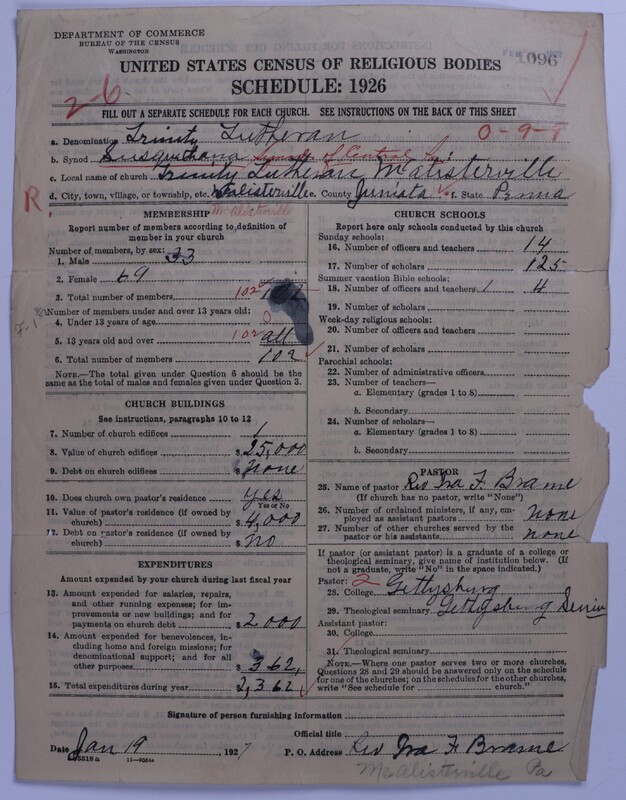 DEPARTMENT OF COMMERCE
BUREAU OF THE CENSUS
WASHINGTON
1096
UNITED STATES CENSUS OF RELIGIOUS BODIES
SCHEDULE: 1926
2-6
FILL OUT A SEPARATE SCHEDULE FOR EACH CHURCH. SEE INSTRUCTIONS ON THE BACK OF THIS SHEET
a. Denomination Trinity Lutheran 0-9-9
b. Synod Susquehana Synod of Central Pa
c. Local name of church Trinity Lutheran McAlisterville
d. City, town, village, or township, etc. McAlisterville e. County Juniata f. State Penna
R. McAlisterville
MEMBERSHIP
Report number of members according to definition of
member in your church
Number of members, by sex:
1. Male 33
2. Female 69
3. Total number of members 102 102
Number of members under and over 13 years old:
4. Under 13 years of age 0
5. 13 years old and over 102 all
6. Total number of members 102
NOTE.—The total given under Question 6 should be
the same as the total of males and females given under Question 3.
CHURCH BUILDINGS
See instructions, paragraphs 10 to 12
7. Number of church edifices 1
8. Value of church edifices $ 25,000
9. Debt on church edifices $ None
10. Does church own pastor's residence yes
Yes or No
11. Value of pastor's residence (if owned by
church) $ 4,000
12. Debt on pastor's residence (if owned by
church) $ No
EXPENDITURES
Amount expended by your church during last fiscal year
13. Amount expended for salaries, repairs,
and other running expenses; for im-
provements or new buildings; and for
payments on church debt $ 2000
14. Amount expended for benevolences, in-
cluding home and foreign missions; for
denominational support; and for all
other purposes $ 362,
15. Total expenditures during year 2,362
CHURCH SCHOOLS
Report here only schools conducted by this church
Sunday schools:
16. Number of officers and teachers 14
17. Number of scholars 125
Summer vacation Bible schools:
18. Number of officers and teachers 1 4
19. Number of scholars
Week-day religious schools:
20. Number of officers and teachers
21. Number of scholars
Parochial schools:
22. Number of administrative officers
23. Number of teachers—
a. Elementary (grades 1 to 8)
b. Secondary
24. Number of scholars—
a. Elementary (grades 1 to 8)
b. Secondary
PASTOR
25. Name of pastor Rev Ira F Brame
(If church has no pastor, write "None")
26. Number of ordained ministers, if any, em-
ployed as assistant pastors none
27. Number of other churches served by the
pastor or his assistants none
If pastor (or assistant pastor) is a graduate of a college or
theological seminary, give name of institution below. (If
not a graduate, write "No" in the space indicated.)
Pastor: 2
28. College Gettysburg
29. Theological seminary Gettysburg Semin
Assistant pastor:
30. College
31. Theological seminary
NOTE.—Where one pastor serves two or more churches,
Questions 28 and 29 should be answered only on the schedule
for one of the churches; on the schedules for the other churches,
write "See schedule for church."
Signature of person furnishing information
Official title
Date Jan 19, 1927 P. O. Address Rev Ira F Brame
McAlisterville Pa